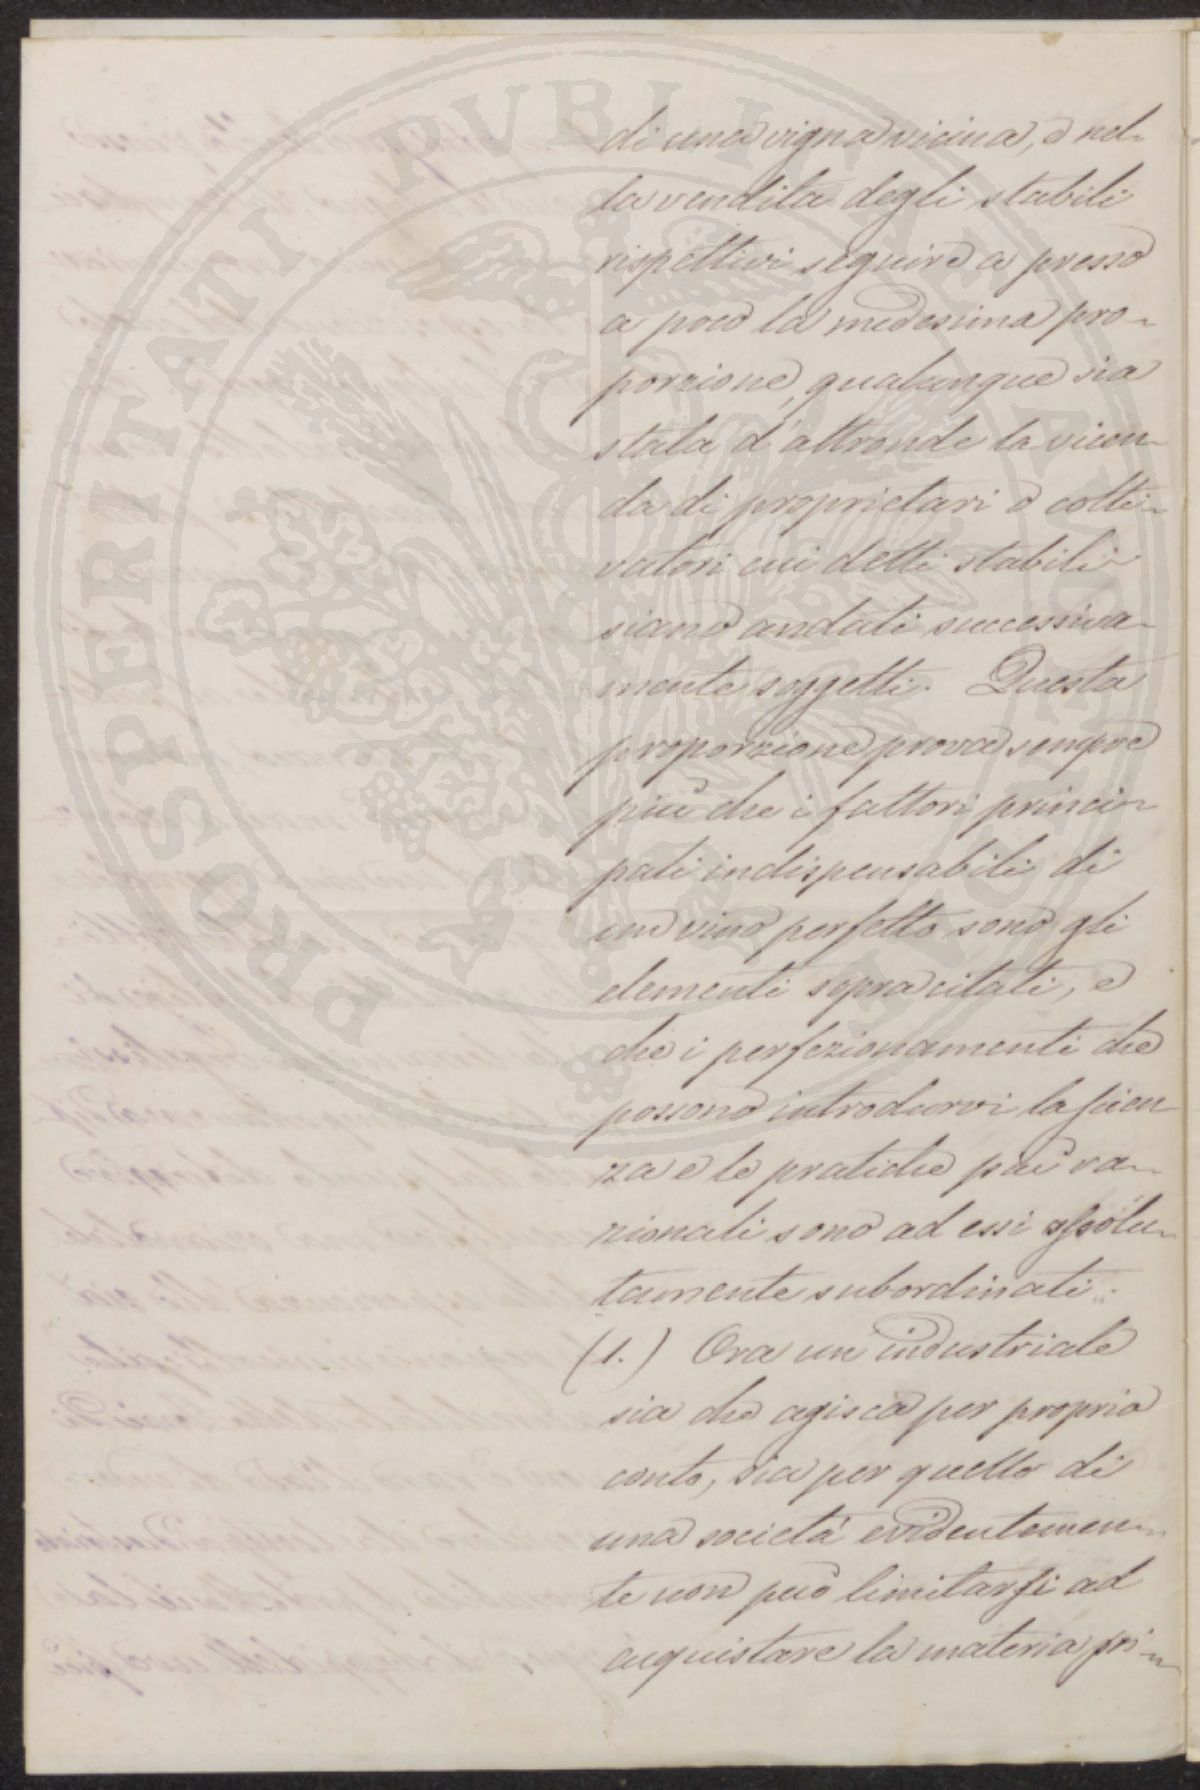 di una vigna vicina, e nel-
la vendita degli stabili
rispettivi seguire a presso
a poco la medesima pro-
porzione, qualunque sia
stata d'altronde la vicen-
da di proprietari o colti-
vatori cui detti stabili
siano andati successiva-
mente soggetti. Questa
proporzione prova sempre
più che i fattori princi-
pali indispensabili di
un vino perfetto sono gli
elementi sopra citati, e
che i perfezionamenti che
possono introdurvi la scien
za e le pratiche più ra-
zionali sono ad essi assolu-
tamente subordinati.
(1.) Ora un industriale
sia che agisca per proprio
conto, sia per quello di
una società evidentemen-
te non può limitarsi ad
acquistare la materia pri-
PVBLICAE
PROSPERITATI